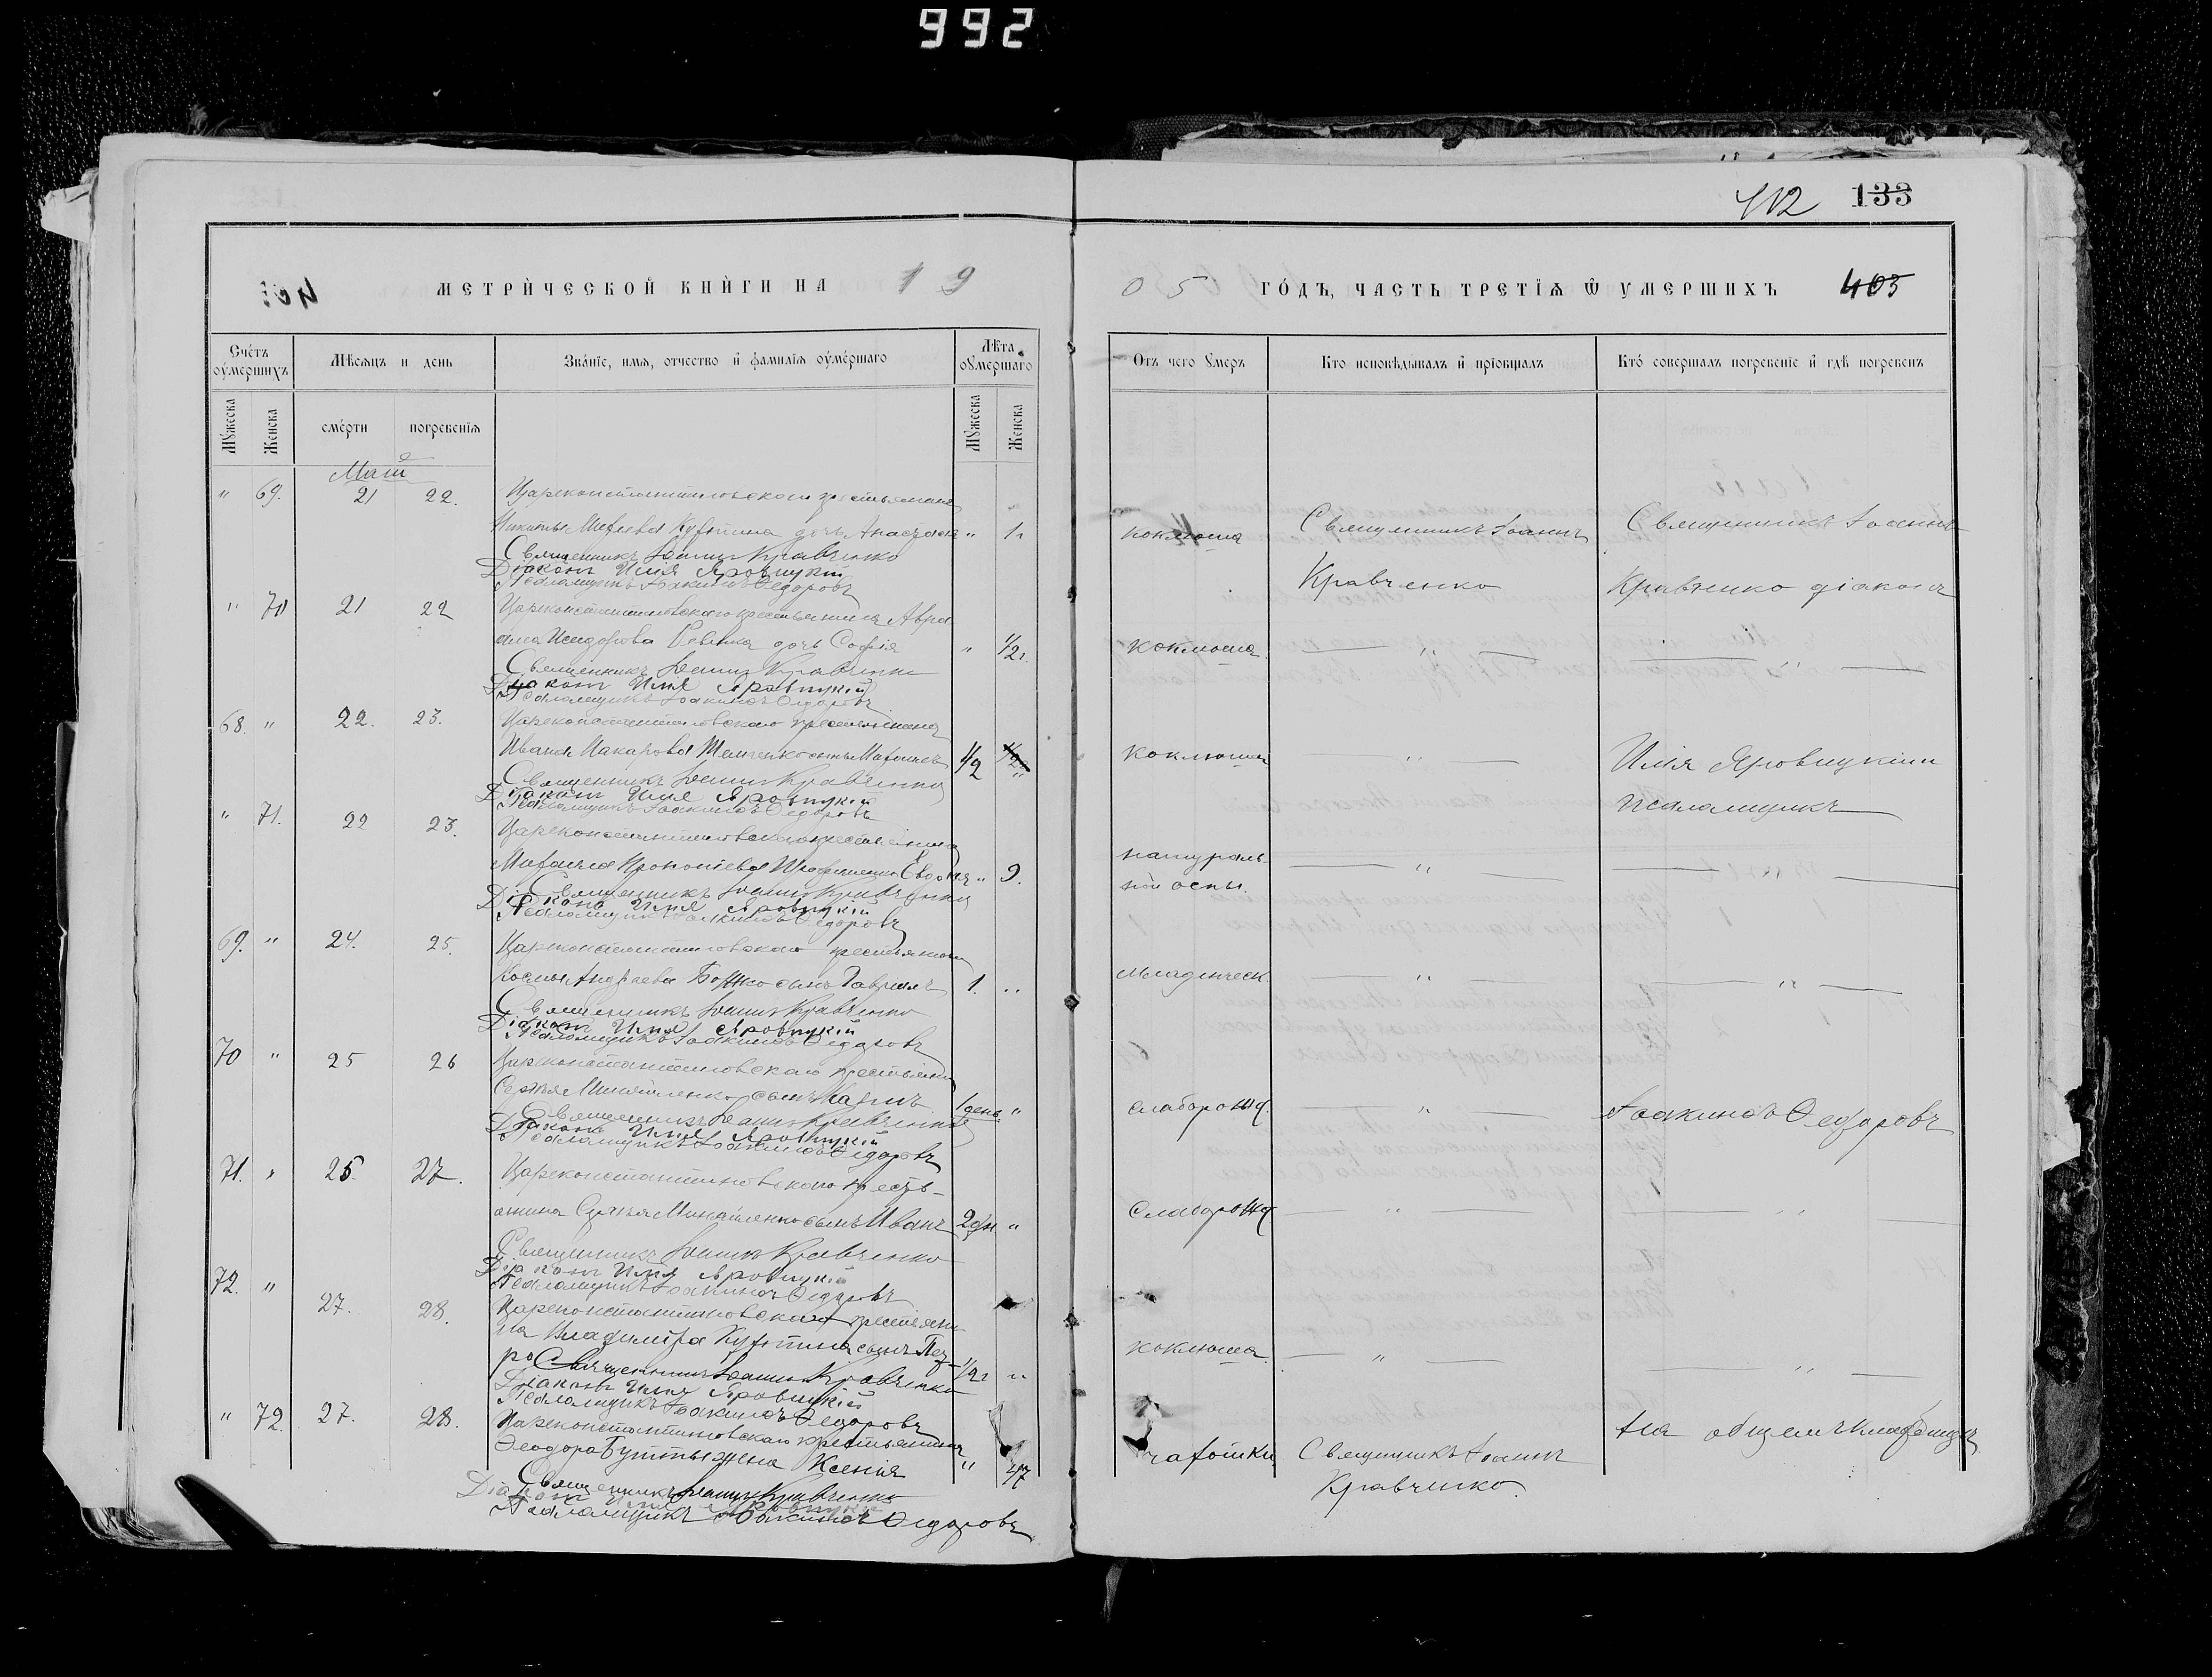 992
412 133
МЕТРИЧЕСКОЙ КНИГИ НА 19
05 ГОДЪ, ЧАСТЬ ТРЕТІЯ Ѿ УМЕРШИХЪ 405
Счетъ оумершихъ
Мѣсяцъ и день
Званіе, имя, отчество и фамилія оумершаго
Лѣта оумершаго
Отъ чего умеръ
Кто исповѣдывалъ и пріобщалъ
Кто совершалъ погребеніе и гдѣ погребенъ
Мужеска
Женска
смерти
погребенія
Мужеска
Женска
Маія
" 69. 21 22. Цареконстантиновскаго крестьянина
Никиты дочь Анастасія " 1 г
Священникъ Іоаннъ Кравченко
Діаконъ Илія Яровицкій
Псаломщикъ Іоакимъ Ѳедоровъ
коклюша
Священникъ Іоаннъ
Кравченко
Священникъ Іоаннъ
Кравченко діаконъ
" 70 21 22 Цареконстантиновскаго крестьянина Авра
ама Исидорова дочь Софія " 1/2 г
Священникъ Іоаннъ Кравченко
Діаконъ Илія Яровицкій
Псаломщикъ Іоакимъ Ѳедоровъ
коклюша. — " — — " —
68. " 22. 23. Цареконстантиновскаго крестьянина
Ивана Макарова сынъ 1/2 "
Священникъ Іоаннъ Кравченко
Діаконъ Илія Яровицкій
Псаломщикъ Іоакимъ Ѳедоровъ
коклюша — " —
Илія Яровицкій и
псаломщикъ
" 71. 22 23. Цареконстантиновскаго крестьянина
Михаила Прокопіева " 9.
Священникъ Іоаннъ Кравченко
Діаконъ Илія Яровицкій
Псаломщикъ Іоакимъ Ѳедоровъ
натураль-
ной оспы. — " — — " —
69. " 24. 25. Цареконстантиновскаго крестьянина
Косьмы Андреева Божко сынъ Гавріилъ 1. "
Священникъ Іоаннъ Кравченко
Діаконъ Илія Яровицкій
Псаломщикъ Іоакимъ Ѳедоровъ
младенческ. — " — — " —
70 " 25 26 Цареконстантиновскаго крестьянина
Сергѣя Михайленко сынъ 1 день "
Священникъ Іоаннъ Кравченко
Діаконъ Илія Яровицкій
Псаломщикъ Іоакимъ Ѳедоровъ
слаборожд. — " —
Іоакимъ Ѳедоровъ
71. " 25. 27. Цареконстантиновскаго кресть-
янина Сергѣя Михайленко сынъ Иванъ 2 дн. "
Священникъ Іоаннъ Кравченко
Діаконъ Илія Яровицкій
Псаломщикъ Іоакимъ Ѳедоровъ
слаборожд — " — — " —
72. " 27. 28. Цареконстантиновскаго крестьяни
на Владиміра сынъ Пет-
ръ Священникъ Іоаннъ Кравченко 1/2 г "
Діаконъ Илія Яровицкій
Псаломщикъ Іоакимъ Ѳедоровъ
коклюша. — " — — " —
" 72. 27. 28. Цареконстантиновскаго крестьянина
Ѳеодора жена Ксенія " 47
Священникъ Іоаннъ Кравченко
Діаконъ Илія Яровицкій
Псаломщикъ Іоакимъ Ѳедоровъ
чахотки
Священникъ Іоаннъ
Кравченко.
на общемъ кладбищѣ